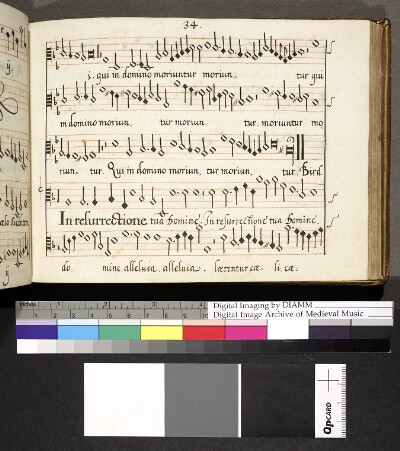 34.
j. qui in domino moriuntur moriun, tur qui
in domino moriun, tur moriun, tur. moriuntur mo
riun, tur. Qui in domino moriun, tur moriun, tur. Bird
In resurrectione tua Domine. In resurrectione tua Domine.
do mine alleluia. alleluia. lætentur cæ. li. cæ.
y.
ij
Inches
Digital Imaging by DIAMM
Digital Image Archive of Medieval Music
QPCARD